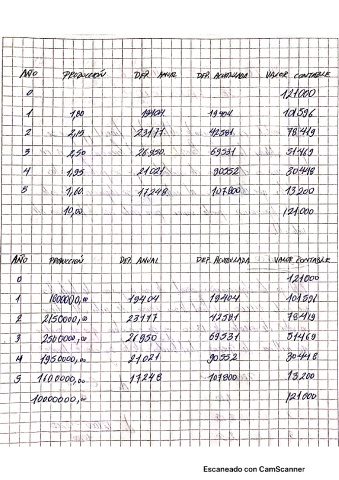 AÑO PRODUCCIÓN DEP. ANUAL DEP. ACUMULADA VALOR CONTABLE
0 121000
1 1,80 19404 19404 101596
2 2,15 23177 42581 78419
3 2,50 26950 69531 51469
4 1,95 21021 90552 30448
5 1,60 17248 107800 13200
10,00 121000
AÑO PRODUCCIÓN DEP. ANUAL DEP. ACUMULADA VALOR CONTABLE
0 121000
1 1800000,00 19404 19404 101596
2 2150000,00 23177 42581 78419
3 2500000,00 26950 69531 51469
4 1950000,00 21021 90552 30448
5 1600000,00 17248 107800 13200
10000000,00 121000
Escaneado con CamScanner